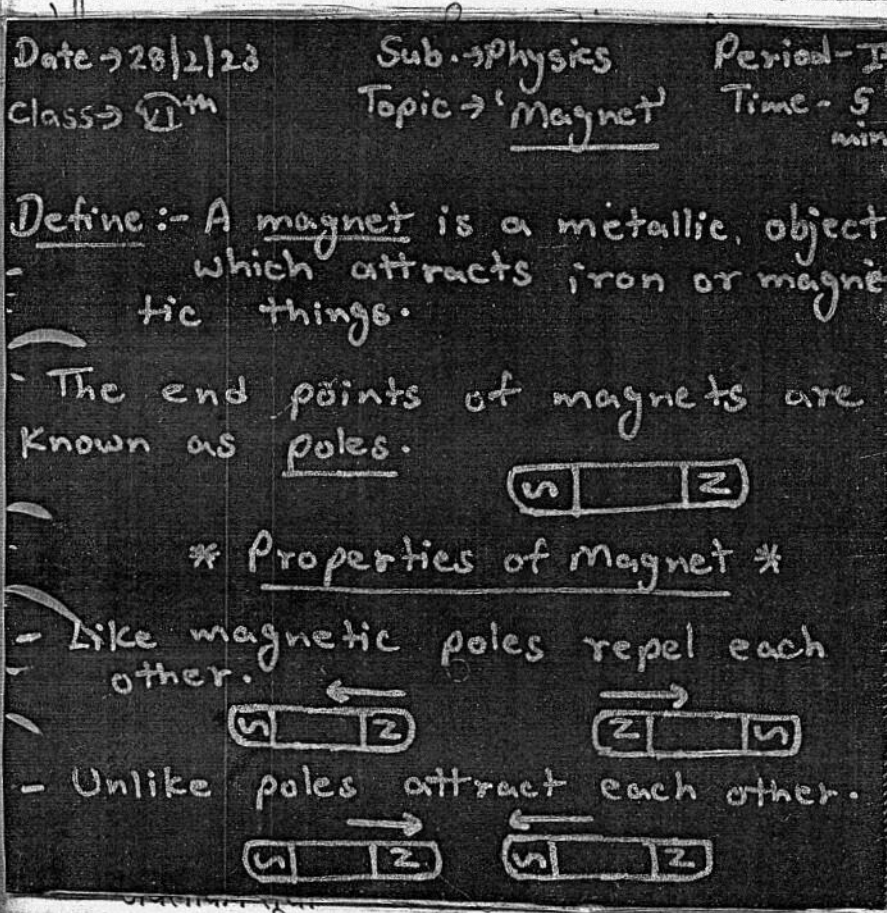 Date → 28/2/23 Sub. → Physics Period - I
Class → VIth Topic → 'Magnet' Time - 5 min
Define :- A magnet is a metallic, object
which attracts iron or magne
tic things.
- The end points of magnets are
known as poles.
S N
* Properties of Magnet *
- Like magnetic poles repel each
other.
S N N S
- Unlike poles attract each other.
S N S N